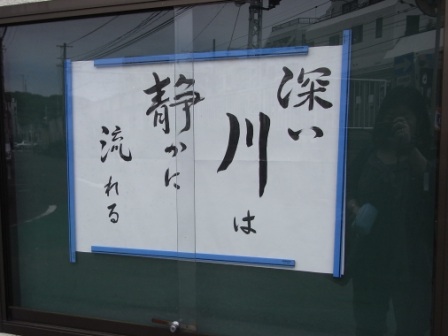 深い
川は
静かに
流れる